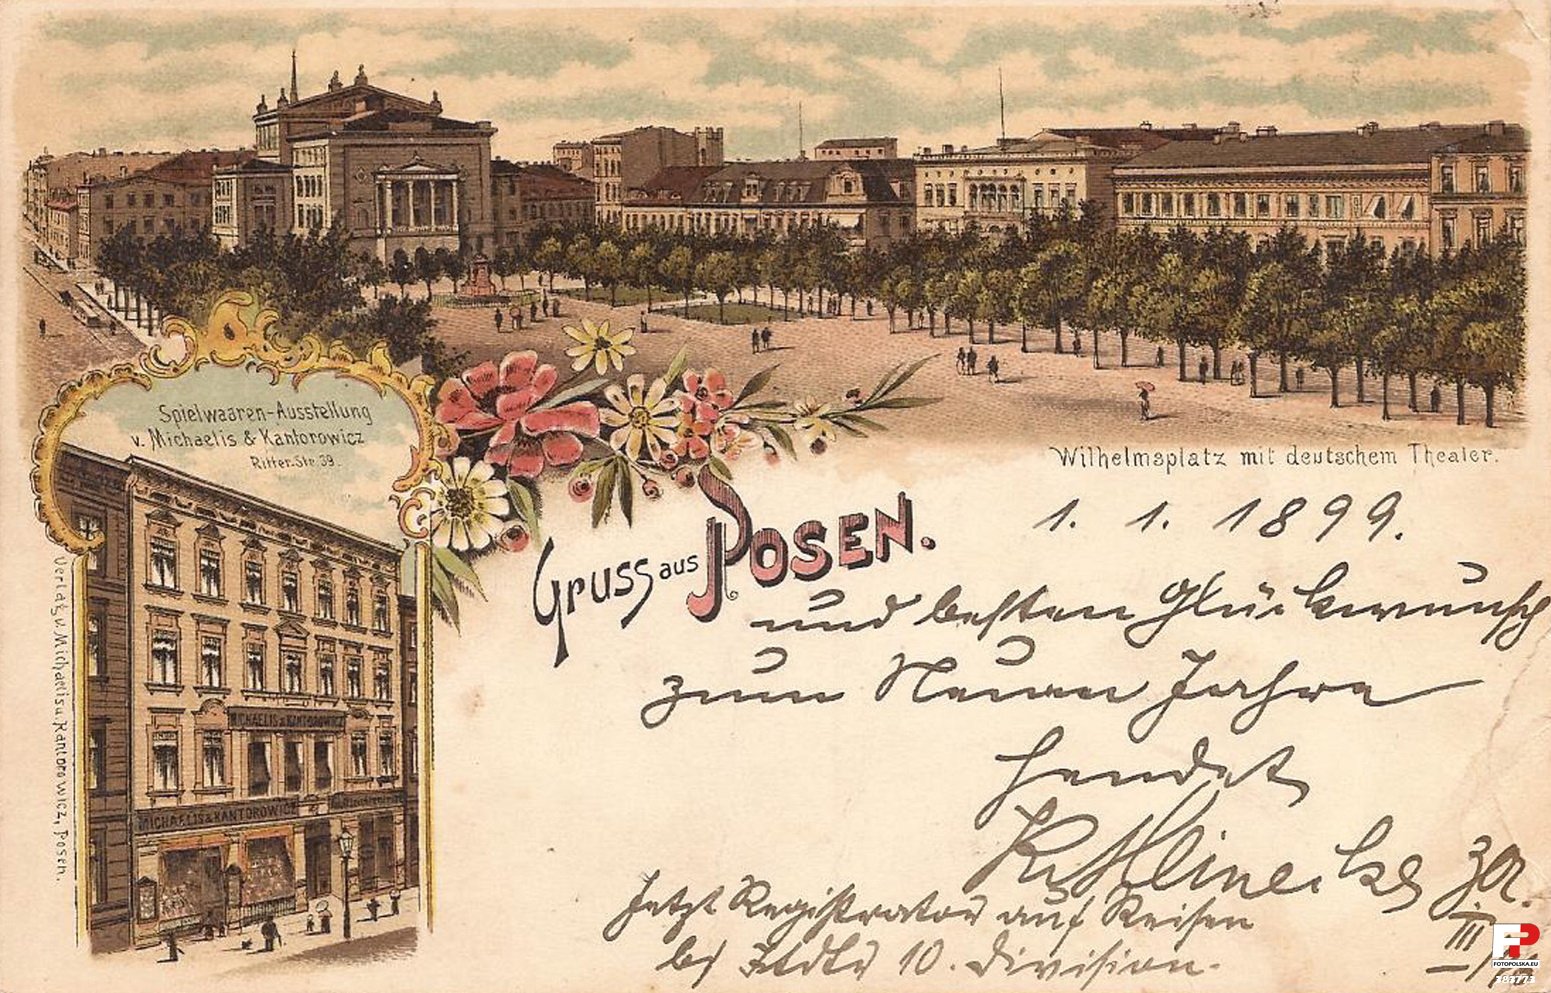 Spielwaaren-Ausstellung
v. Michaelis & Kantorowicz
Ritter-Str. 39.
Wilhelmsplatz mit deutschem Theater.
Gruss aus POSEN.
1. 1. 1899.
und besten Glückwunsch
zum Neuen Jahre
sendet
Jetzt Registrator auf Reisen
10. Division.
MICHAELIS & KANTOROWICZ
MICHAELIS & KANTOROWICZ
Verlag v. Michaelis u. Kantorowicz, Posen.
FOTOPOLSKA.EU